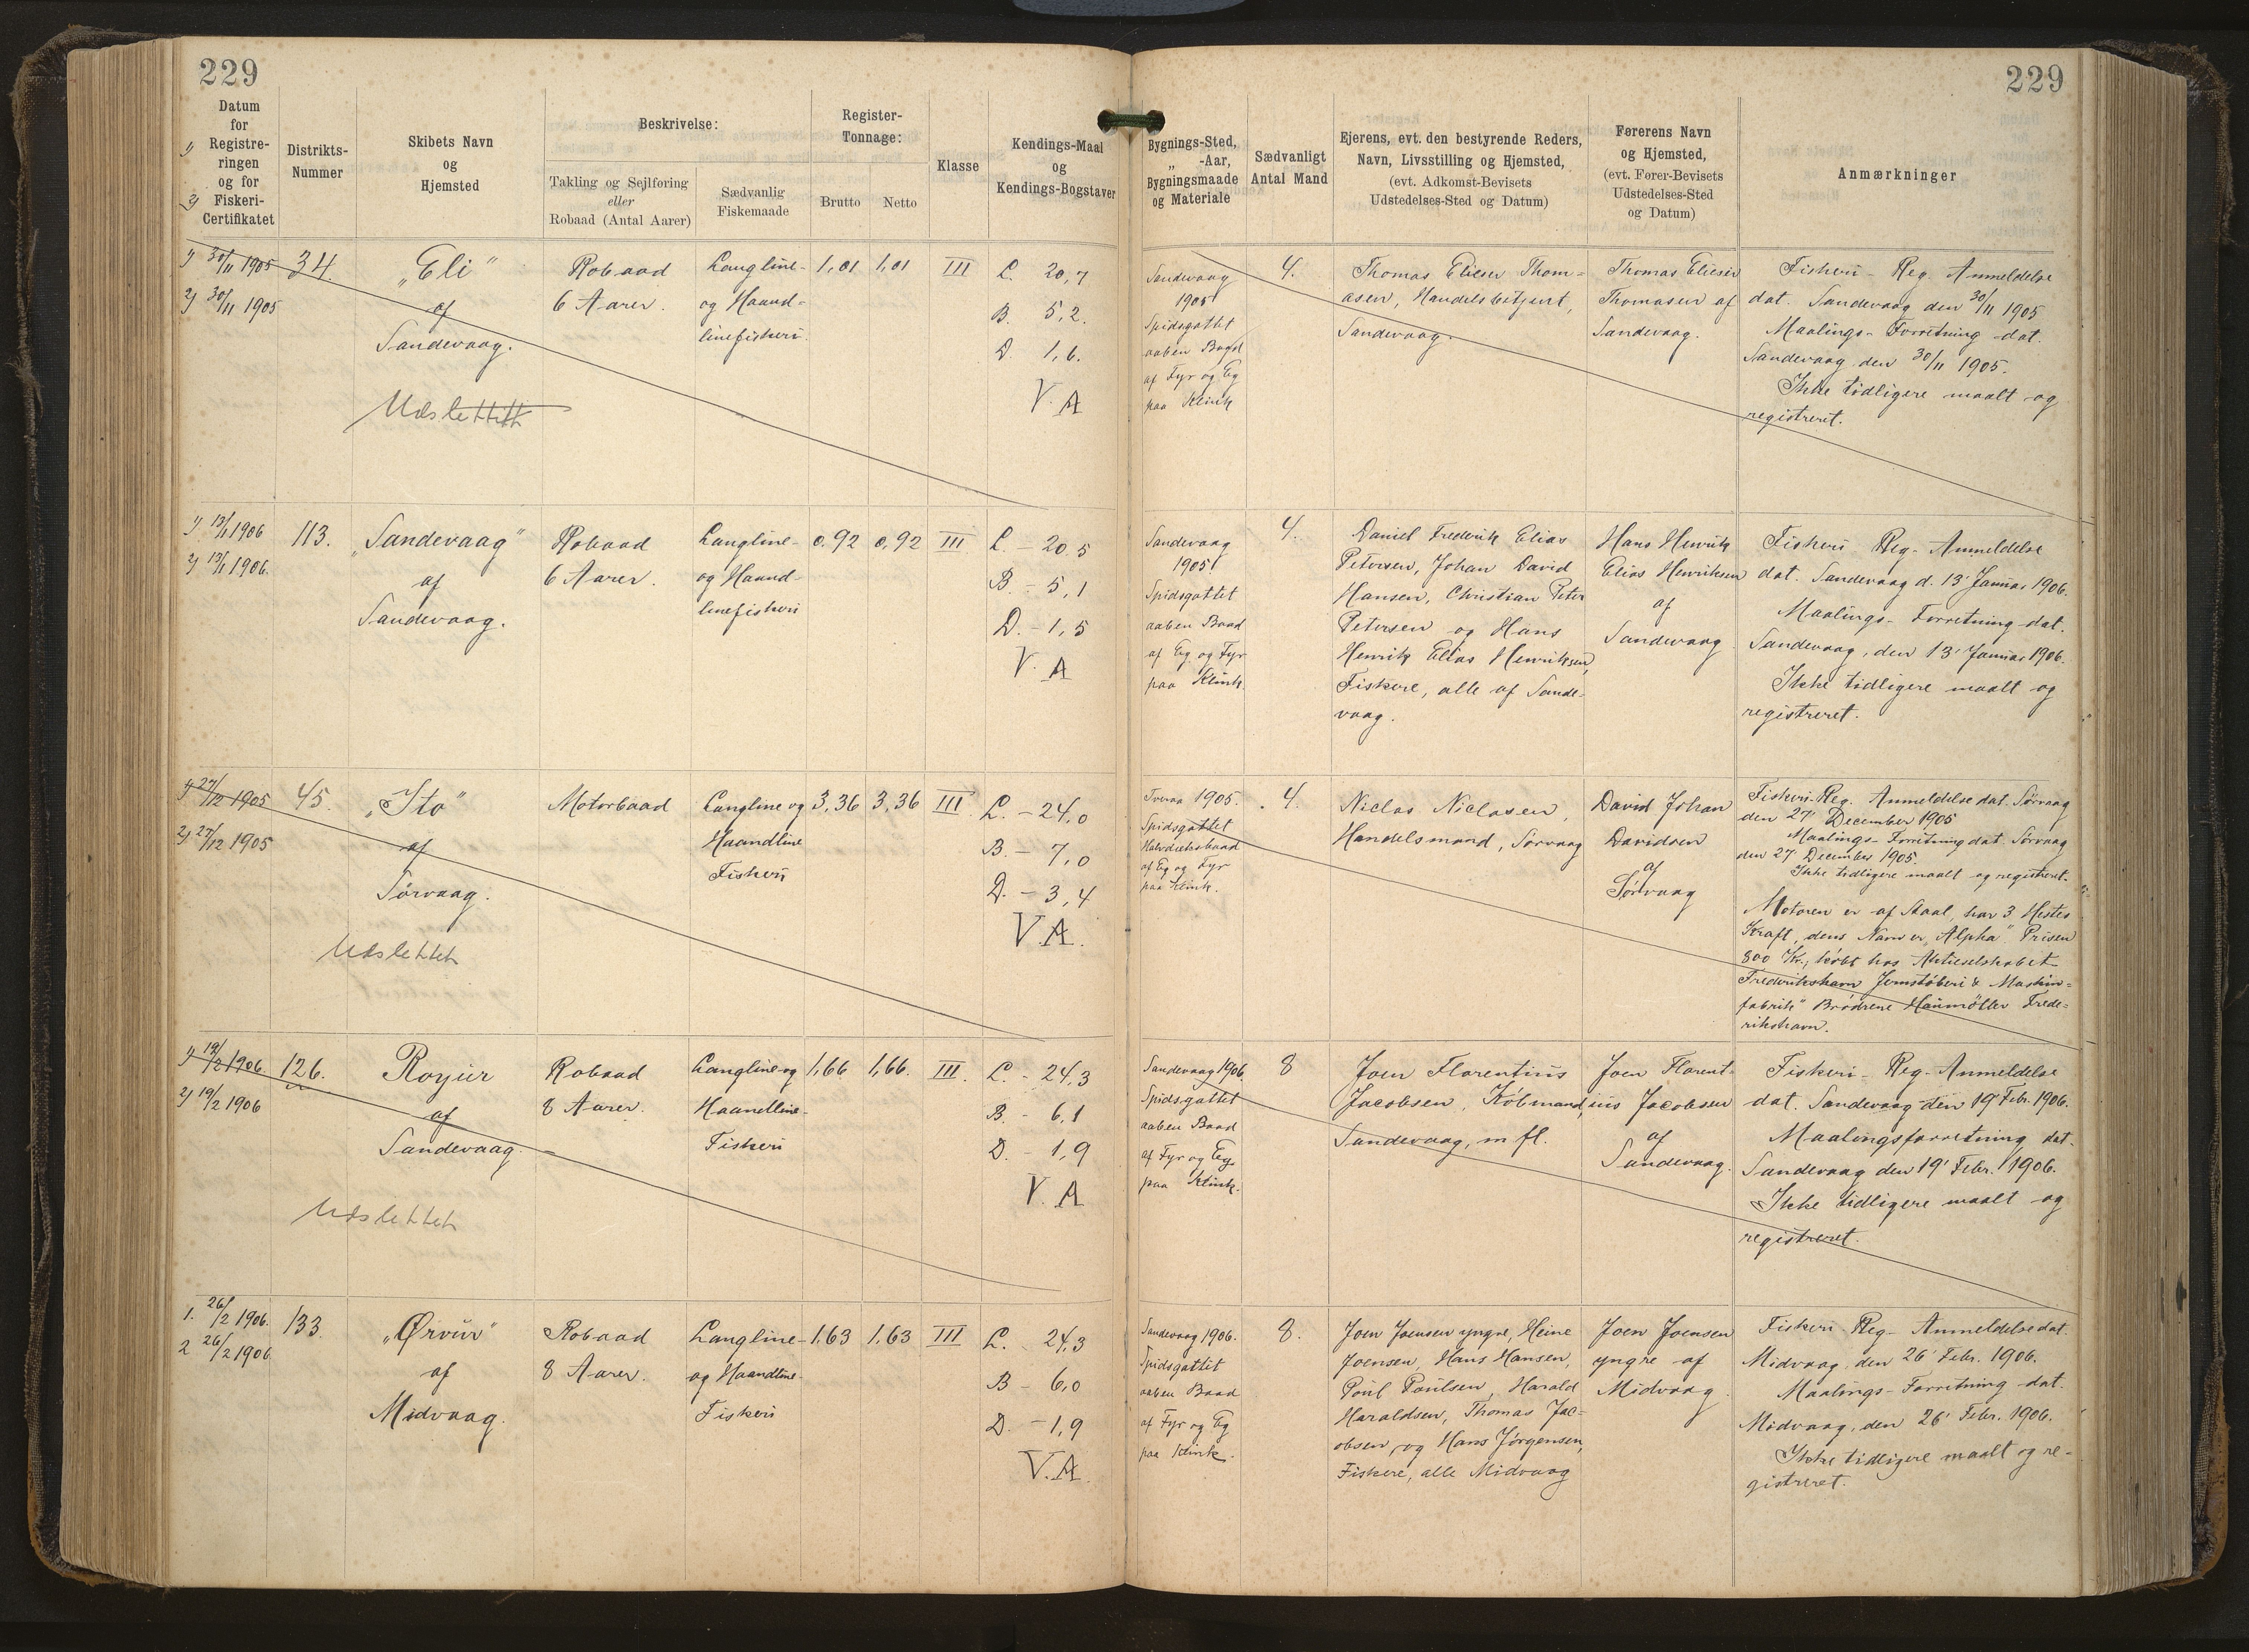 229
229
Datum
for
Registre-
ringen
og for
Fiskeri-
Certifikatet
Distrikts-
Nummer
Skibets Navn
og
Hjemsted
Beskrivelse:
Takling og Sejlføring
eller
Robaad (Antal Aarer)
Sædvanlig
Fiskemaade
Register-
Tonnage:
Brutto
Netto
Klasse
Kendings-Maal
og
Kendings-Bogstaver
Bygnings-Sted,
„ -Aar,
Bygningsmaade
og Materiale
Sædvanligt
Antal Mand
Ejerens, evt. den bestyrende Reders,
Navn, Livsstilling og Hjemsted,
(evt. Adkomst-Bevisets
Udstedelses-Sted og Datum)
Førerens Navn
og Hjemsted,
(evt. Fører-Bevisets
Udstedelses-Sted
og Datum)
Anmærkninger
1) 30/11 1905
2) 30/11 1905
34.
„Eli"
af
Sandevaag.
Udslettet
Robaad
6 Aarer.
Langline-
og Haand-
linefiskeri.
1,01
1,01
III
L. 20,7
B. 5,2.
D. 1,6.
V. A
Sandevaag
1905
Spidsgattet
aaben Baad
af Fyr og Eg
paa Klink
4.
Thomas Elieser Thom-
asen, Handelsbetjent,
Sandevaag.
Thomas Elieser
Thomasen af
Sandevaag.
Fiskeri- Reg. Anmeldelse
dat. Sandevaag den 30/11 1905
Maalings- Forretning dat.
Sandevaag den 30/11 1905.
Ikke tidligere maalt og
registreret.
1) 13/1 1906
2) 13/1 1906.
113.
„Sandevaag"
af
Sandevaag.
Robaad
6 Aarer.
Langline-
og Haand-
linefiskeri
0,92
0,92
III
L. - 20.5
B. - 5,1
D. - 1,5
V. A
Sandevaag
1905
Spidsgattet
aaben Baad
af Eg og Fyr
paa Klink.
4.
Daniel Frederik Elias
Petersen, Johan David
Hansen, Christian Peter
Petersen og Hans
Henrik Elias Henriksen,
Fiskere, alle af Sande-
vaag.
Hans Henrik
Elias Henriksen
af
Sandevaag.
Fiskeri Reg- Anmeldelse
dat. Sandevaag d. 13' Januar 1906.
Maalings- Forretning dat.
Sandevaag, den 13' Januar 1906.
Ikke tidligere maalt og
registreret.
1) 27/12 1905
2) 27/12 1905
45.
„Ito"
af
Sørvaag.
Udslettet
Motorbaad
Langline og
Haandline
Fiskeri
3,36
3,36
III.
L. - 24,0
B. - 7,0
D. - 3,4
V.A.
Tveraa 1905.
Spidsgattet
Halvdæksbaad
af Eg og Fyr
paa Klink.
4.
Niclas Niclasen,
Handelsmand, Sørvaag
David Johan
Davidsen
af
Sørvaag
Fiskeri-Reg. Anmeldelse dat. Sørvaag
den 27' December 1905
Maalings- Forretning dat. Sørvaag
den 27' December 1905.
Ikke tidligere maalt og registreret.
Motoren er af Staal, har 3 Hestes
Kraft, dens Navn er „Alpha" Prisen
800 Kr., købt hos Aktieselskabet
Frederikshavn Jernstøberi & Maskin-
fabrik" Brødrene Houmøller Frede-
rikshavn.
1) 19/2 1906.
2) 19/2 1906
126.
Royur
af
Sandevaag.
Udslettet
Robaad
8 Aarer.
Langline-og
Haandline-
Fiskeri
1,66
1,66.
III.
L. - 24,3
B. - 6,1
D. - 1,9
V. A
Sandevaag 1906.
Spidsgattet
aaben Baad
af Fyr og Eg
paa Klink.
8
Joen Florentius
Jacobsen, Købmand,
Sandevaag, m fl.
Joen Florent-
ius Jacobsen
af
Sandevaag.
Fiskeri- Reg- Anmeldelse
dat. Sandevaag den 19' Febr. 1906.
Maalingsforretning dat.
Sandevaag den 19' Febr. 1906.
Ikke tidligere maalt og
registreret.
1. 26/2 1906.
2 26/2 1906.
133.
„Ørvur"
af
Midvaag.
Robaad
8 Aarer.
Langline-
og Haandline-
Fiskeri
1,63
1,63
III
L. - 24,3
B - 6,0
D. - 1,9
V.A.
Sandevaag 1906.
Spidsgattet
aaben Baad
af Fyr og Eg
paa Klink.
8.
Joen Joensen yngre, Heine
Joensen, Hans Hansen,
Poul Poulsen, Harald
Haraldsen, Thomas Jac-
obsen, og Hans Jørgensen,
Fiskere, alle Midvaag
Joen Joensen
yngre af
Midvaag.
Fiskeri- Reg- Anmeldelse dat.
Midvaag, den 26' Febr. 1906.
Maalings- Forretning dat.
Midvaag, den 26' Febr. 1906.
Ikke tidligere maalt og re-
gistreret.